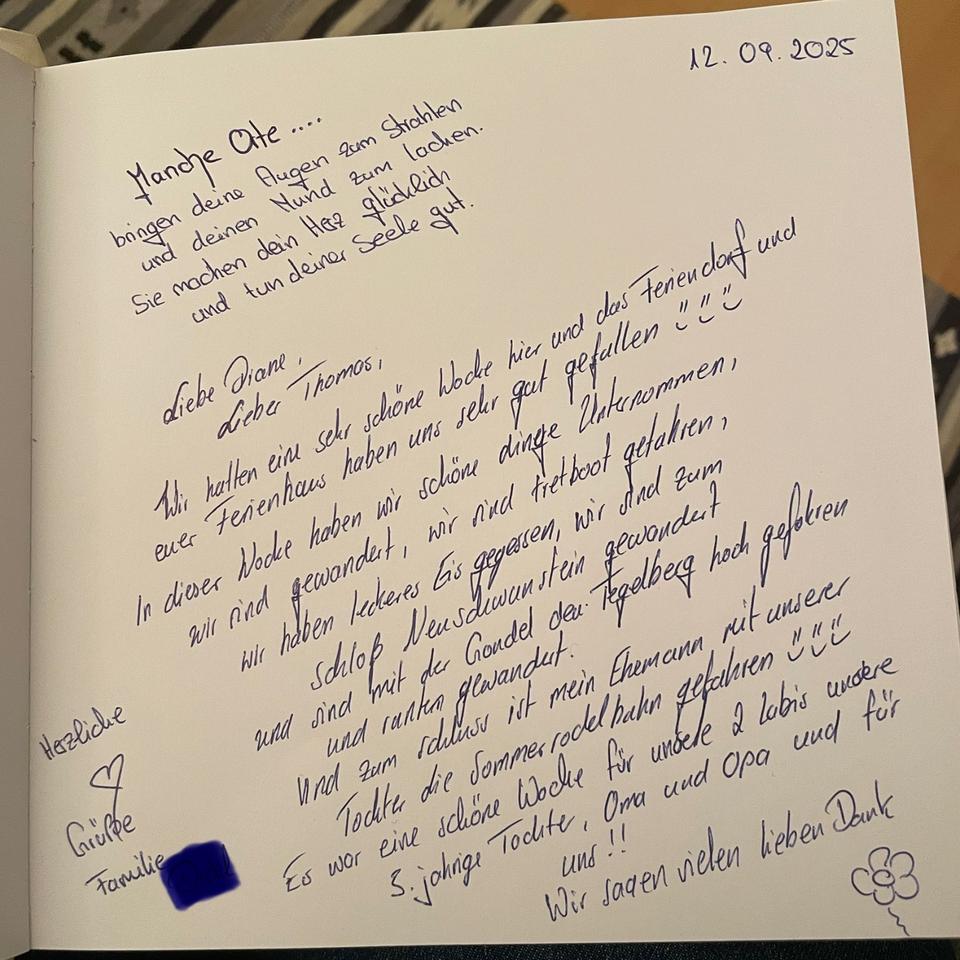 12. 09. 2025
Manche Orte ....
bringen deine Augen zum Strahlen
und deinen Mund zum lachen.
Sie machen dein Herz glücklich
und tun deiner Seele gut.
Liebe Diane,
Lieber Thomas,
Wir hatten eine sehr schöne Woche hier und das Feriendorf und
euer Ferienhaus haben uns sehr gut gefallen
In dieser Woche haben wir schöne dinge Unternommen,
wir sind gewandert, wir sind tretboot gefahren,
wir haben leckeres Eis gegessen, wir sind zum
schloß Neuschwanstein gewandert
und sind mit der Gondel den Tegelberg hoch gefahren
und runten gewandert.
Und zum schluss ist mein Ehemann mit unserer
Tochter die Sommerrodelbahn gefahren
Es war eine schöne Woche für unsere 2 Labis unsere
3. jährige Tochter, Oma und Opa und für
uns!!
Wir sagen vielen lieben Dank
Herzliche
Grüße
Familie